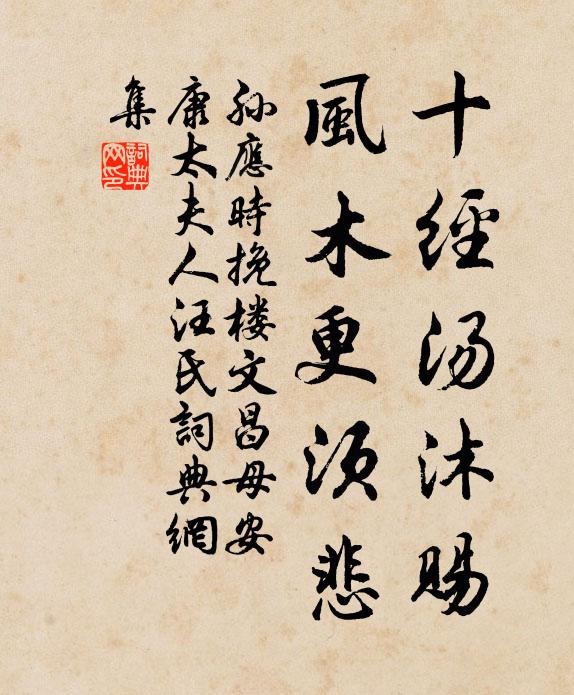 十經湯沐賜
風木更須悲
孫應時挽楼文昌母安
康太夫人汪氏詞典網
集
詞典
网印